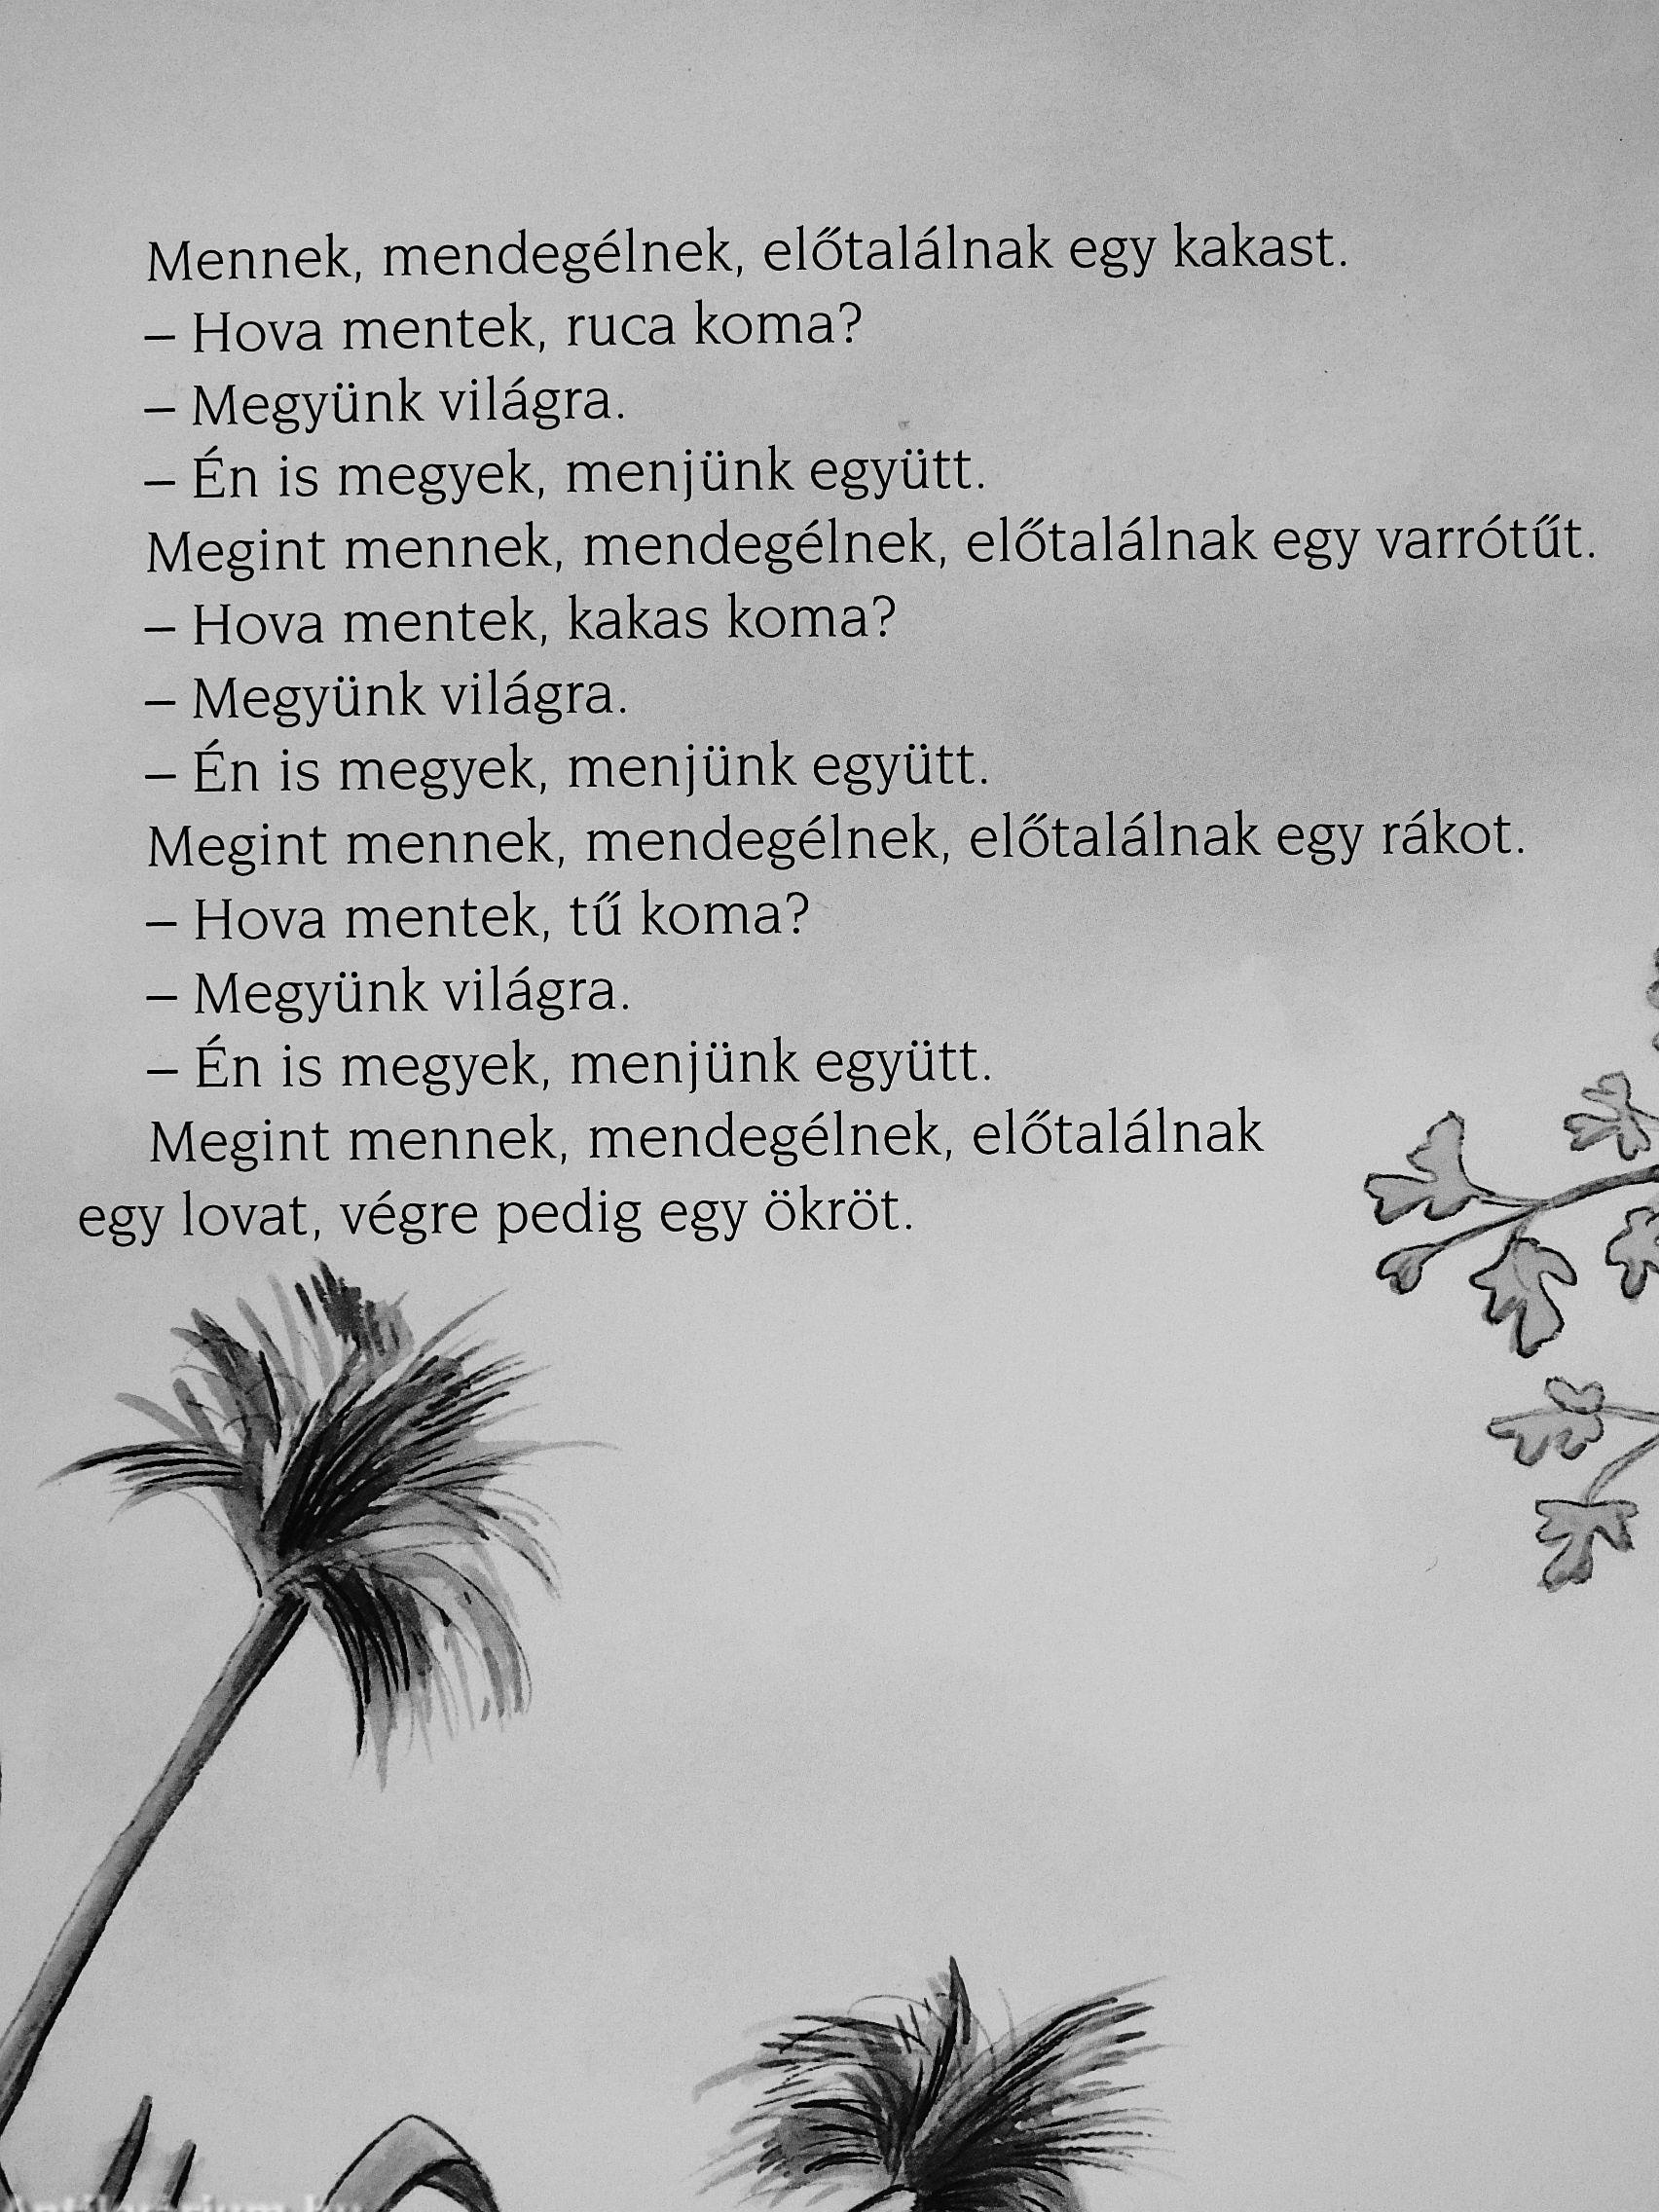 Mennek, mendegélnek, előtalálnak egy kakast.
– Hova mentek, ruca koma?
– Megyünk világra.
– Én is megyek, menjünk együtt.
Megint mennek, mendegélnek, előtalálnak egy varrótűt.
– Hova mentek, kakas koma?
– Megyünk világra.
– Én is megyek, menjünk együtt.
Megint mennek, mendegélnek, előtalálnak egy rákot.
– Hova mentek, tű koma?
– Megyünk világra.
– Én is megyek, menjünk együtt.
Megint mennek, mendegélnek, előtalálnak
egy lovat, végre pedig egy ökröt.